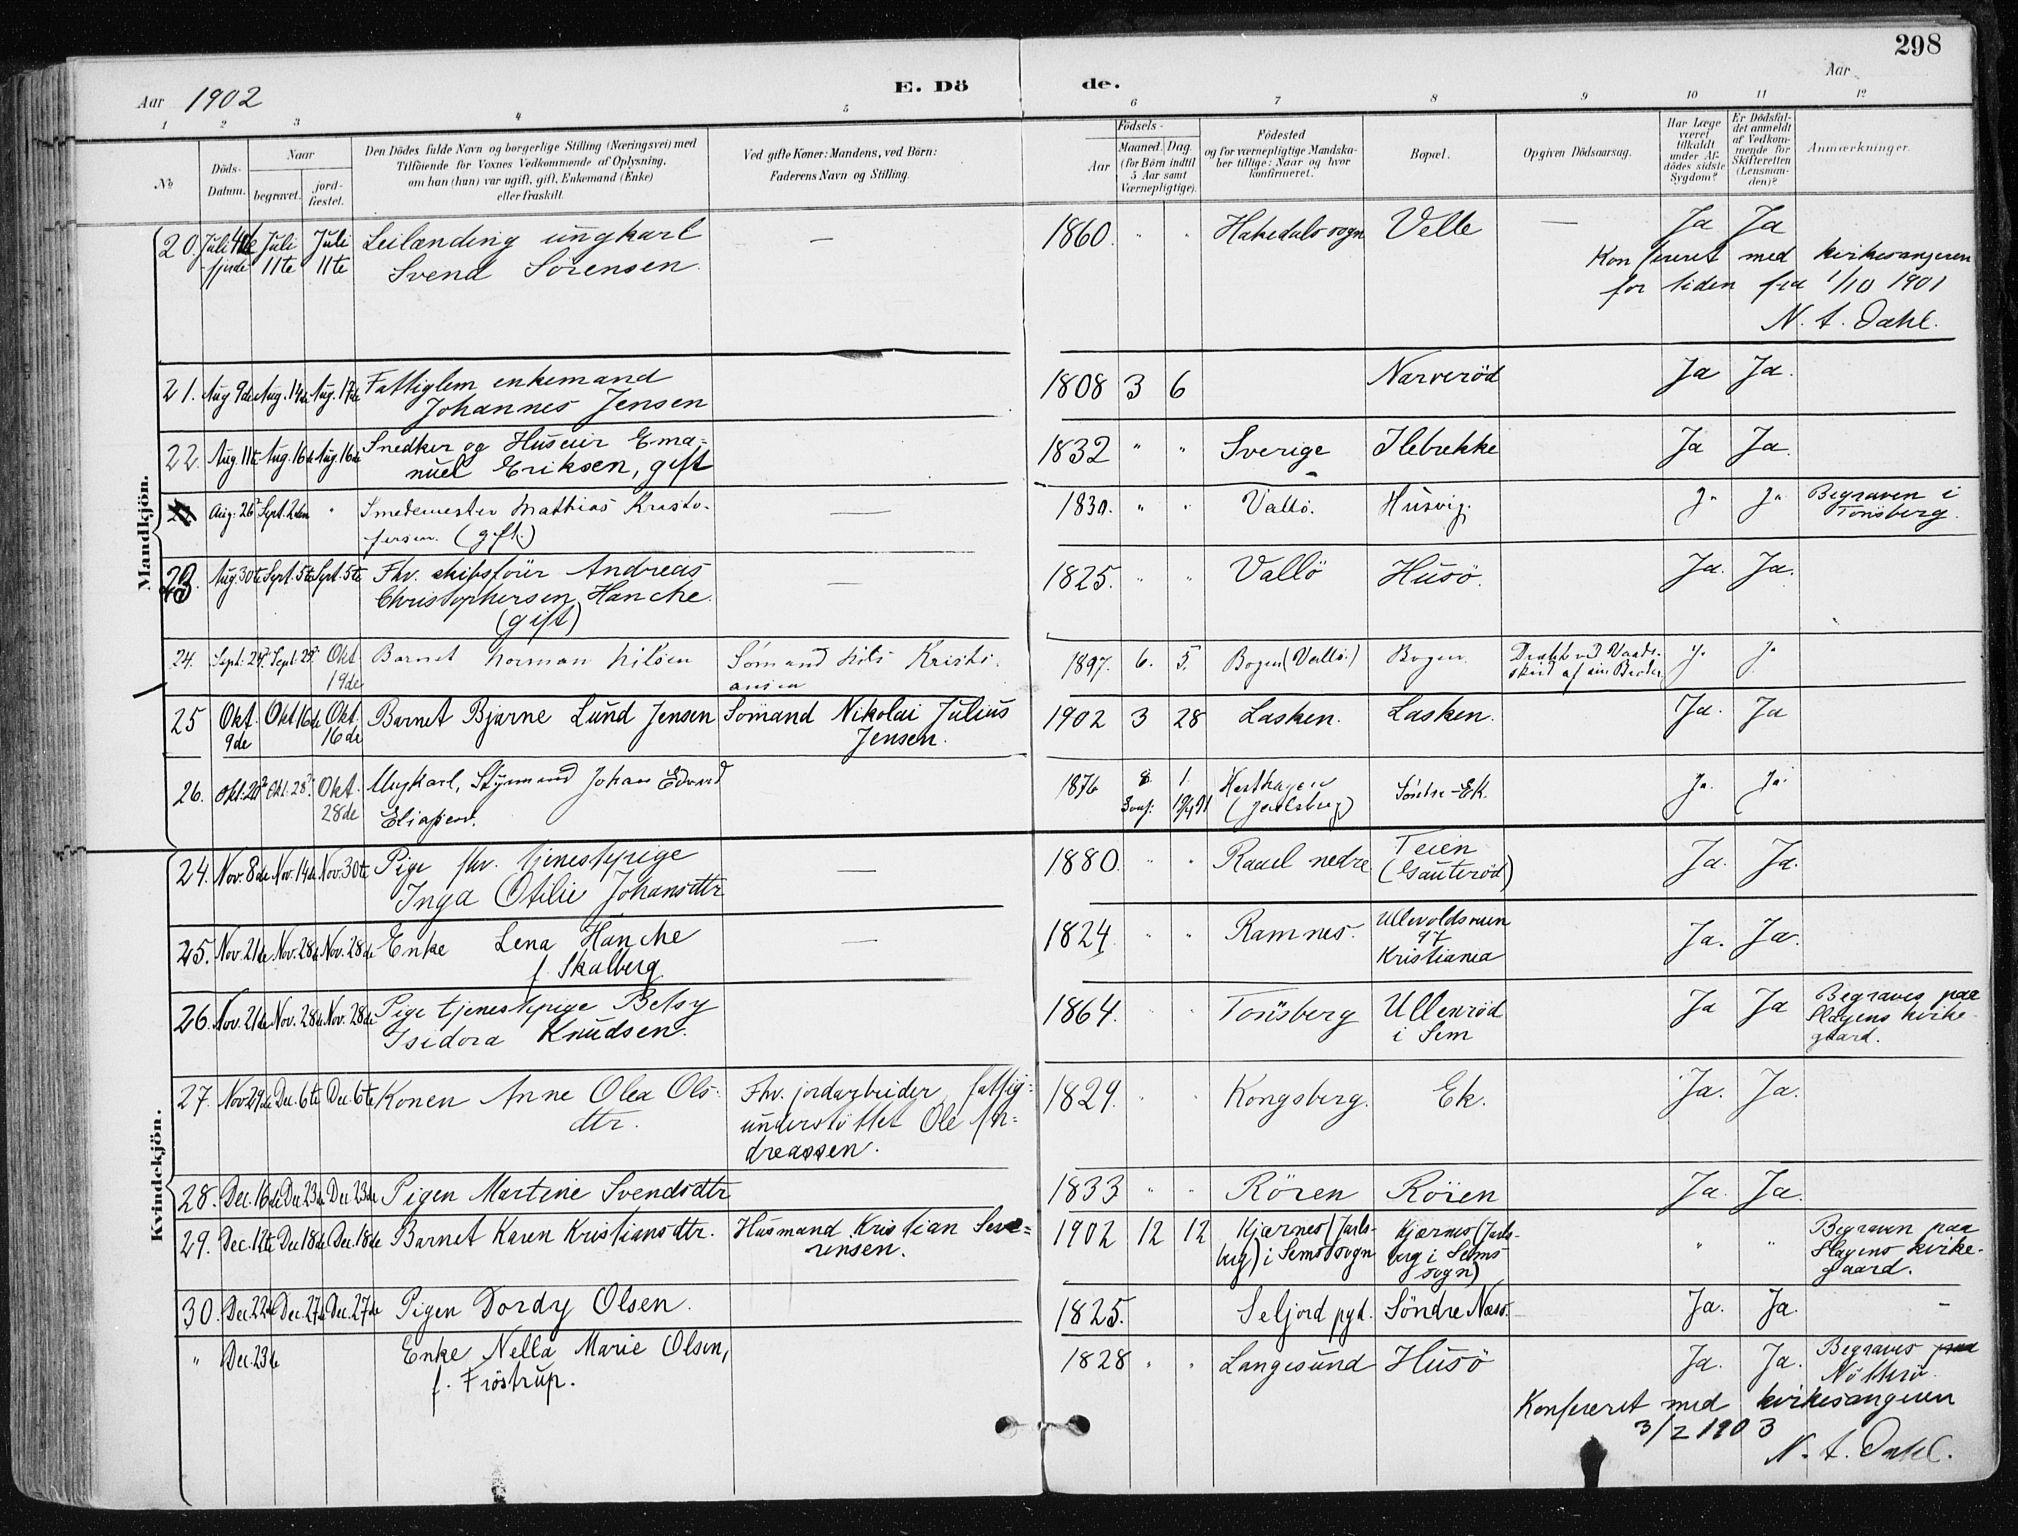 298
Aar 1902
E. Dö de.
Aar
1 2 3 4 5 6 7 8 9 10 11 12
No
Döds-Datum.
Naar
begravet.
jord-fæstet.
Den Dödes fulde Navn og borgerlige Stilling (Næringsvei) med
Tilföiende for Voxnes Vedkommende af Oplysning,
om han (hun) var ugift, gift, Enkemand (Enke)
eller fraskilt.
Ved gifte Koner: Mandens, ved Börn:
Faderens Navn og Stilling.
Födsels-
Aar
Maaned. Dag.
(for Börn indtil
5 Aar samt
Værnepligtige).
Födested
og for værnepligtige Mandska-
ber tillige: Naar og hvor
konfirmeret.
Bopæl.
Opgiven Dödsaarsag.
Har Læge
været
tilkaldt
under Af-
dödes sidste
Sygdom?
Er Dödsfal-
det anmeldt
af Vedkom-
mende for
Skifteretten
(Lensman-
den)?
Anmærkninger.
Mandkjön.
20. Juli 4de Juli Juli Leilænding ungkarl — 1860. " " Hakedals sogn Velle — Ja Ja
fjerde 11te 11te Svend Sörensen.
Konfereret med kirkesangeren
for tiden fra 1/10 1901
N. A. Dahl.
21. Aug 9de Aug. 14de Aug. 17de Fattiglem enkemand 1808 3 6 Narveröd Ja Ja.
Johannes Jensen
22. Aug. 11te Aug. 16de Aug. 16de Snedker og Huseier Ema- 1832 " " Sverige Ilebrekke Ja Ja.
nuel Eriksen, gift
Aug. 26 Sept. 2den " Smedemester Mathias Kristo- — 1830. " " Vallö. Husvig. Ja Ja Begraven i
fersen. (gift.) Tönsberg.
23. Aug. 30te Sept. 5te Sept. 5te Fhv. skibsförer Andreas — 1825. " " Vallö Husö. Ja. Ja.
Christophersen Hanche.
(gift)
24. Sept. 24 Sept. 29 Okt Barnet Norman Nilsen Sömand Nils Kristi- 1897. 6. 5. Bogen (Vallö.) Bogen. Dræbt ved Vaade- Ja Ja
19de ansen skud af sin Broder.
25 Okt. Okt 16de Okt. Barnet Bjarne Lund Jensen Sömand Nikolai Julius 1902 3 28 Lasken. Lasken. Ja. Ja
9de 16de Jensen.
26. Okt. 20 Okt. 28 Okt. Ungkarl, Styrmand Johan Edvard 1876 8. 1. (Jarlsberg) Söndre-Ek. Ja. Ja.
28de Eliassen.
Kvindekjön.
24. Nov. 8de Nov. 14de Nov. 30te Pige fhv. tjenestepige — 1880. " " Rauel nedre Teien Ja. Ja.
Inga Otilie Johansdtr (Gauteröd)
25. Nov. 21de Nov. 28de Nov. 28de Enke Lena Hanche — 1824. " " Ramnes. Ullevoldsveien Ja. Ja.
f. Skalberg 97
Kristiania
26. Nov. 21de Nov. 28de Nov. 28de Pige tjenestepige Betsy 1864. " " Tönsberg Ulleröd Ja Ja Begraves paa
Isidora Knudsen. i Sem Slagens kirke-
gaard.
27. Nov 29de Dec. 6te Dec. 6te Konen Anne Olea Ols- Fhv. jordarbeider, fattig- 1829. " " Kongsberg. Ek. Ja. Ja.
dtr. understöttet Ole An-
dreassen.
28. Dec. 16de Dec 23de Dec. 23de Pigen Martine Svendsdtr 1833 " " Rören Rören Ja. Ja.
29. Dec. 12te Dec 18de Dec. 18de Barnet Karen Kristiansdtr. Husmand Kristian Seve- 1902 12 12 Kjærnes (Jarls- Kjærnes (Jarls- " " Begraven paa
rinsen. berg) i Sems sogn berg i Sems Slagens kirke-
sogn) gaard.
30. Dec. 22de Dec. 27de Dec. 27de Pigen Dordy Olsen. 1825. Seljord pgd. Söndre Næss. Ja. Ja. —
" Dec. 23de Enke Nella Marie Olsen, 1828 " " Langesund Husö Ja. Ja. Begraves paa
f. Fröstrup. Nötterö.
Konfereret med kirkesangeren
3/2 1903
N. A. Dahl.